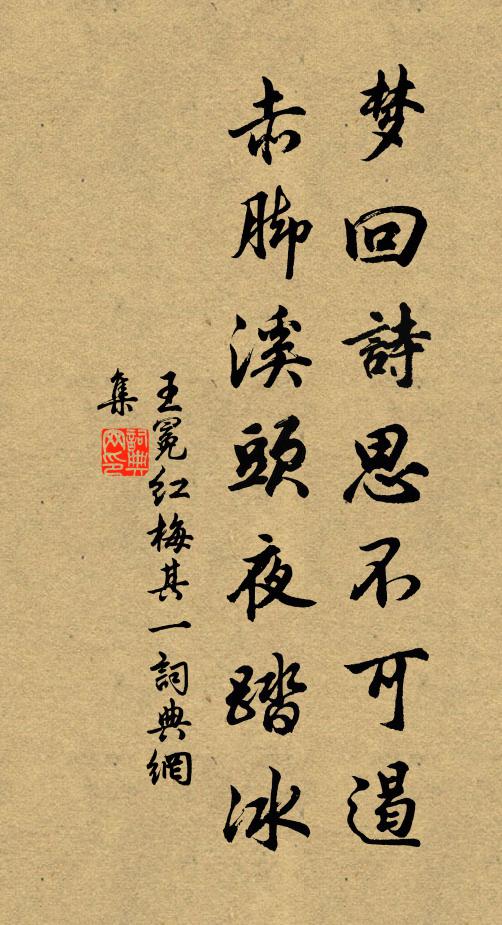 梦回詩思不可遏
赤脚溪頭夜踏冰
王冕红梅其一詞典網
集
詞典
网印